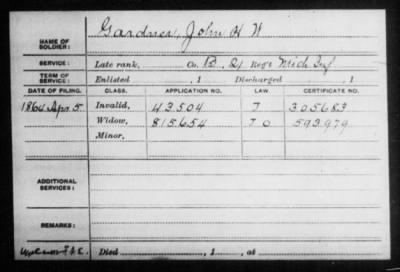 NAME OF SOLDIER: Gardner, John H W
SERVICE: Late rank, Co. B, 21 Reg't Mich Inf
TERM OF SERVICE: Enlisted , 1 Discharged , 1
DATE OF FILING. CLASS. APPLICATION NO. LAW. CERTIFICATE NO.
1864 Apr. 5 Invalid, 43504 J 305683
Widow, 815.654 J O 593.979
Minor,
ADDITIONAL SERVICES:
REMARKS:
Died , 1 , at